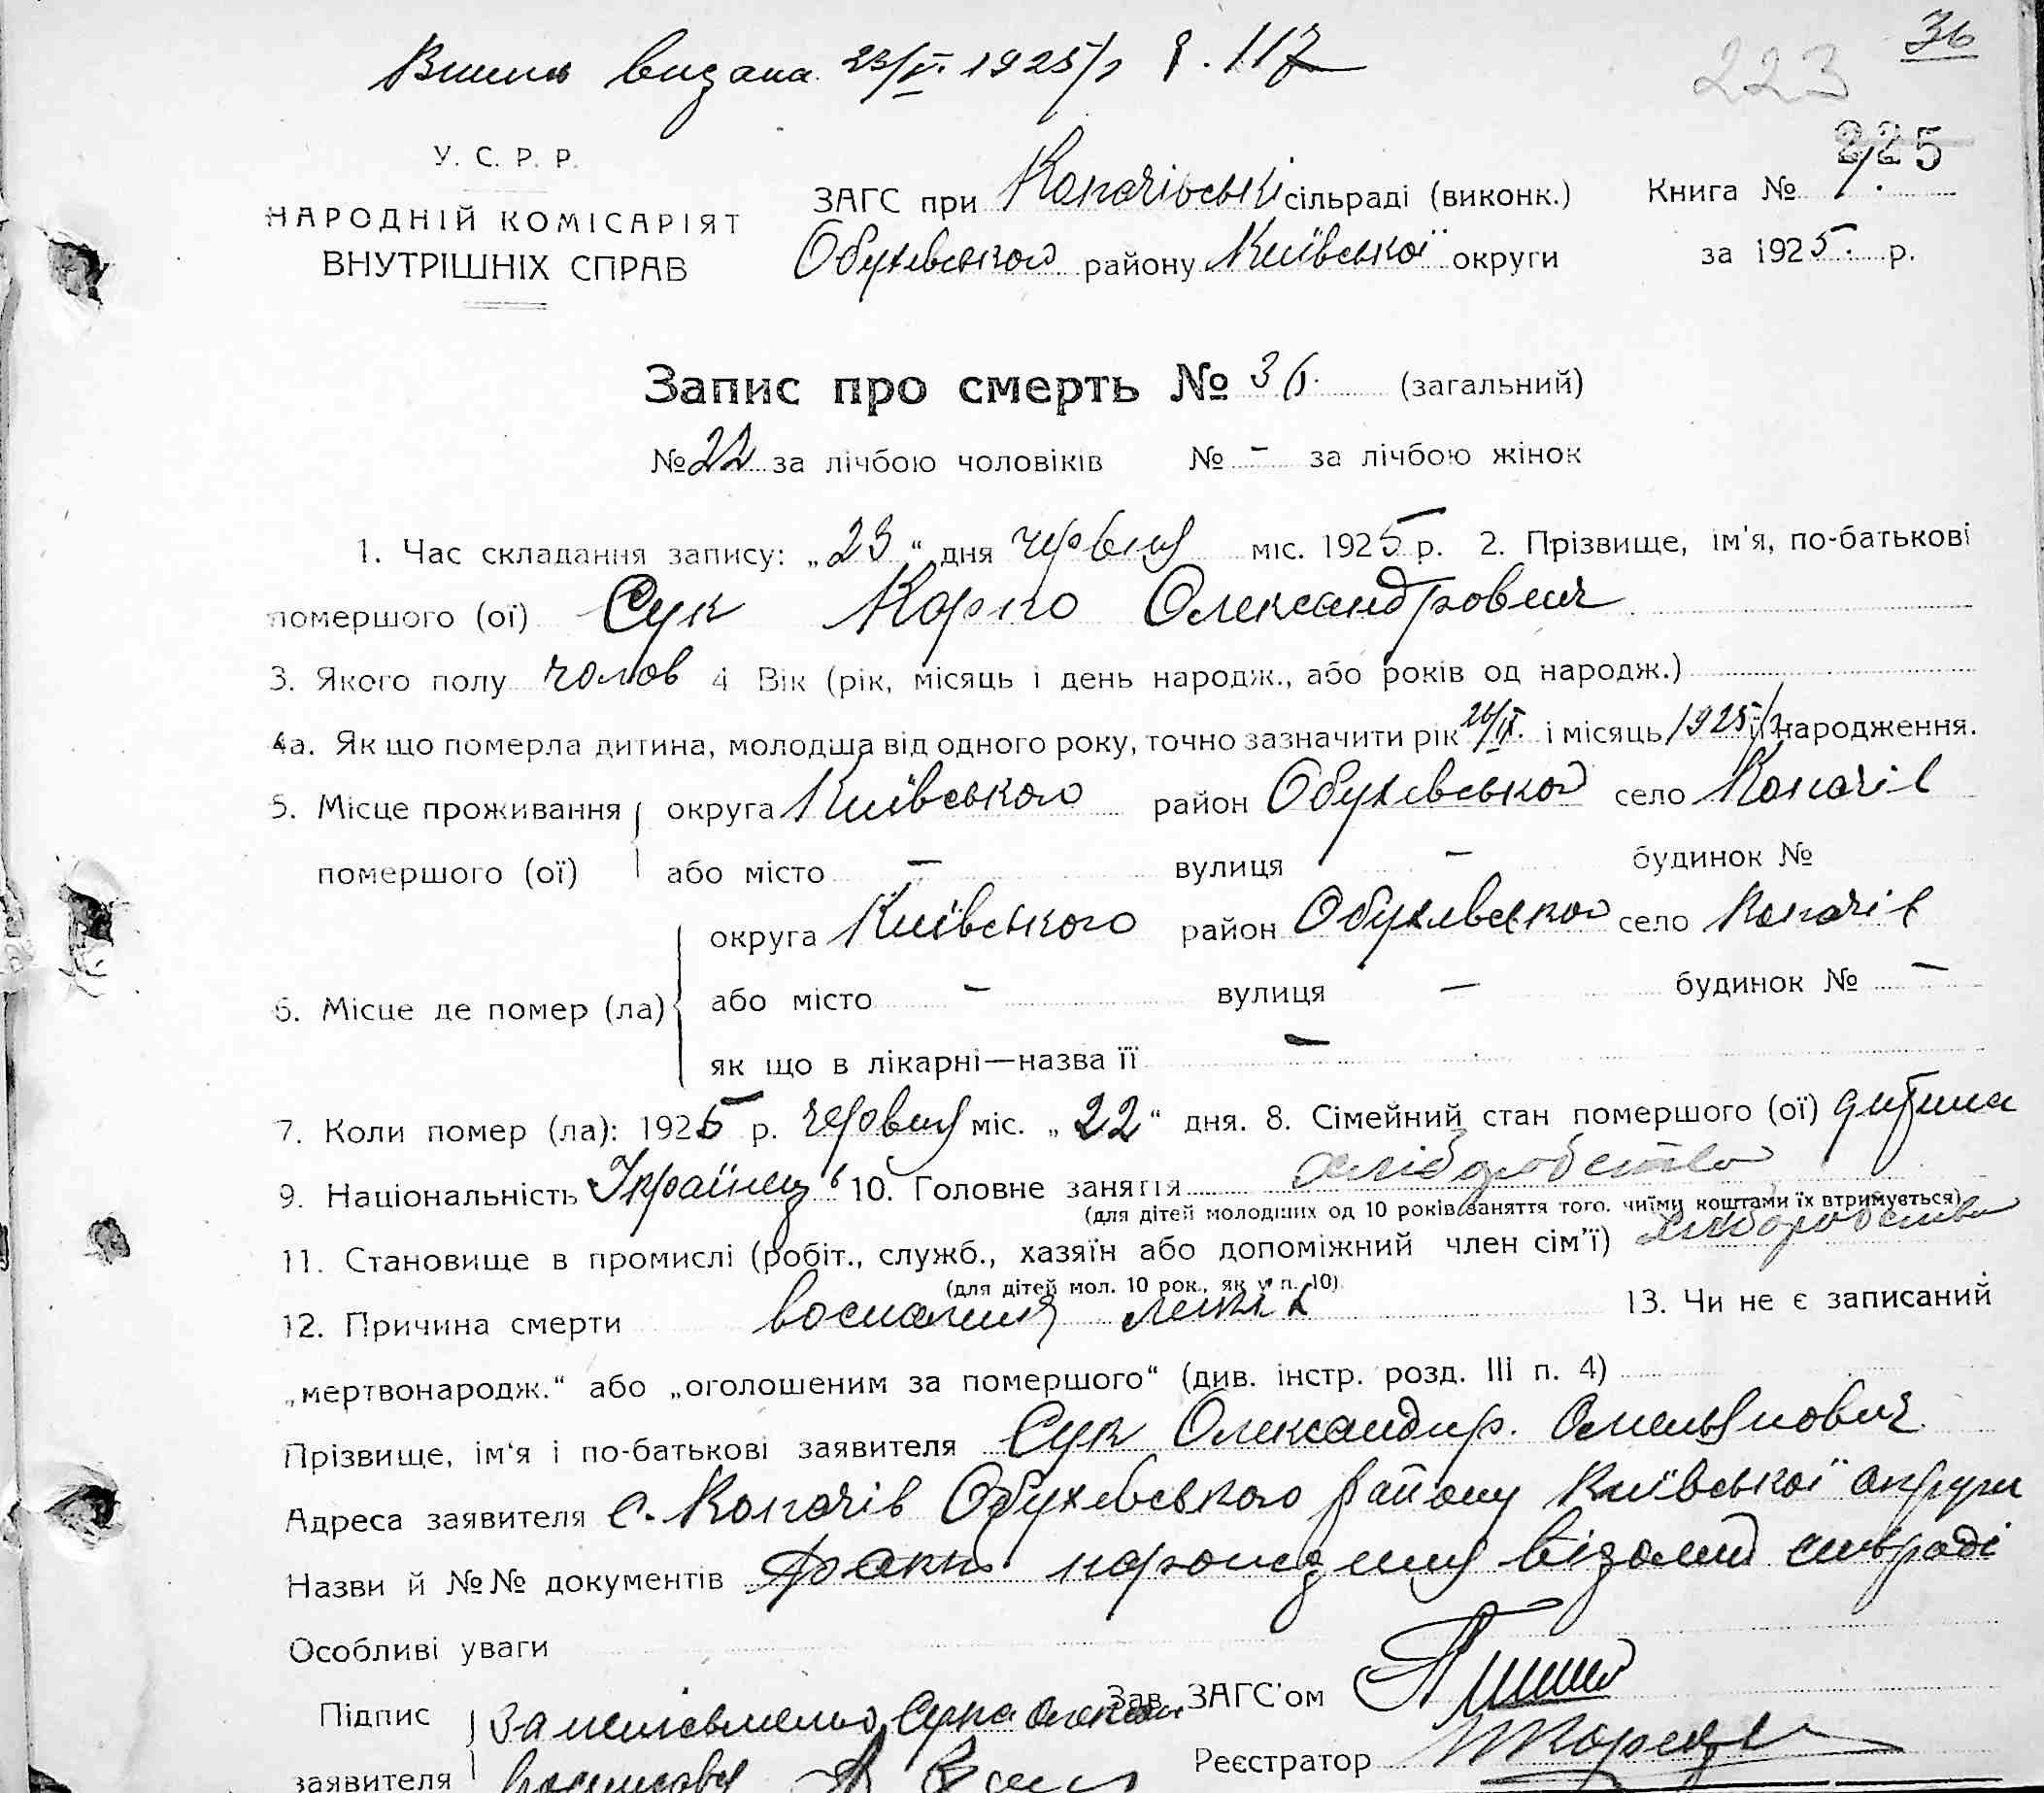 видана 23/VI. 1925/г 117
36
223
225
У. С. Р. Р.
НАРОДНІЙ КОМІСАРІЯТ
ВНУТРІШНІХ СПРАВ
ЗАГС при Копачівські сільраді (виконк.)
Обухівського району Київської округи
Книга № 1.
за 1925. р.
Запис про смерть № 36. (загальний)
№ 22 за лічбою чоловіків № – за лічбою жінок
1. Час складання запису: „23“ дня червня міс. 1925 р. 2. Прізвище, ім'я, по-батькові
помершого (ої) Сук Карпо Олександрович
3. Якого полу чолов 4 Вік (рік, місяць і день народж., або років од народж.)
4а. Як що померла дитина, молодша від одного року, точно зазначити рік і місяць 1925/г її народження.
5. Місце проживання округа Київського район Обухівського село Копачів
помершого (ої) або місто – вулиця – будинок №
округа Київського район Обухівського село Копачів
6. Місце де помер (ла) або місто – вулиця – будинок № –
як що в лікарні—назва її –
7. Коли помер (ла): 1925 р. червня міс. „22“ дня. 8. Сімейний стан помершого (ої) дитина
9. Національність Українець 10. Головне заняття хліборобство
(для дітей молодших од 10 років заняття того, чиїми коштами їх втримується)
11. Становище в промислі (робіт., служб., хазяїн або допоміжний член сім'ї) хліборобство
(для дітей мол. 10 рок., як у п. 10)
12. Причина смерти воспаления легких 13. Чи не є записаний
„мертвонародж.“ або „оголошеним за помершого“ (див. інстр. розд. III п. 4)
Прізвище, ім'я і по-батькові заявителя Сук Олександр. Омельянович
Адреса заявителя с. Копачів Обухівського району Київської округи
Назви й №№ документів факт народження відомий сільраді
Особливі уваги
Підпис Сука Зав. ЗАГС'ом
заявителя Реєстратор